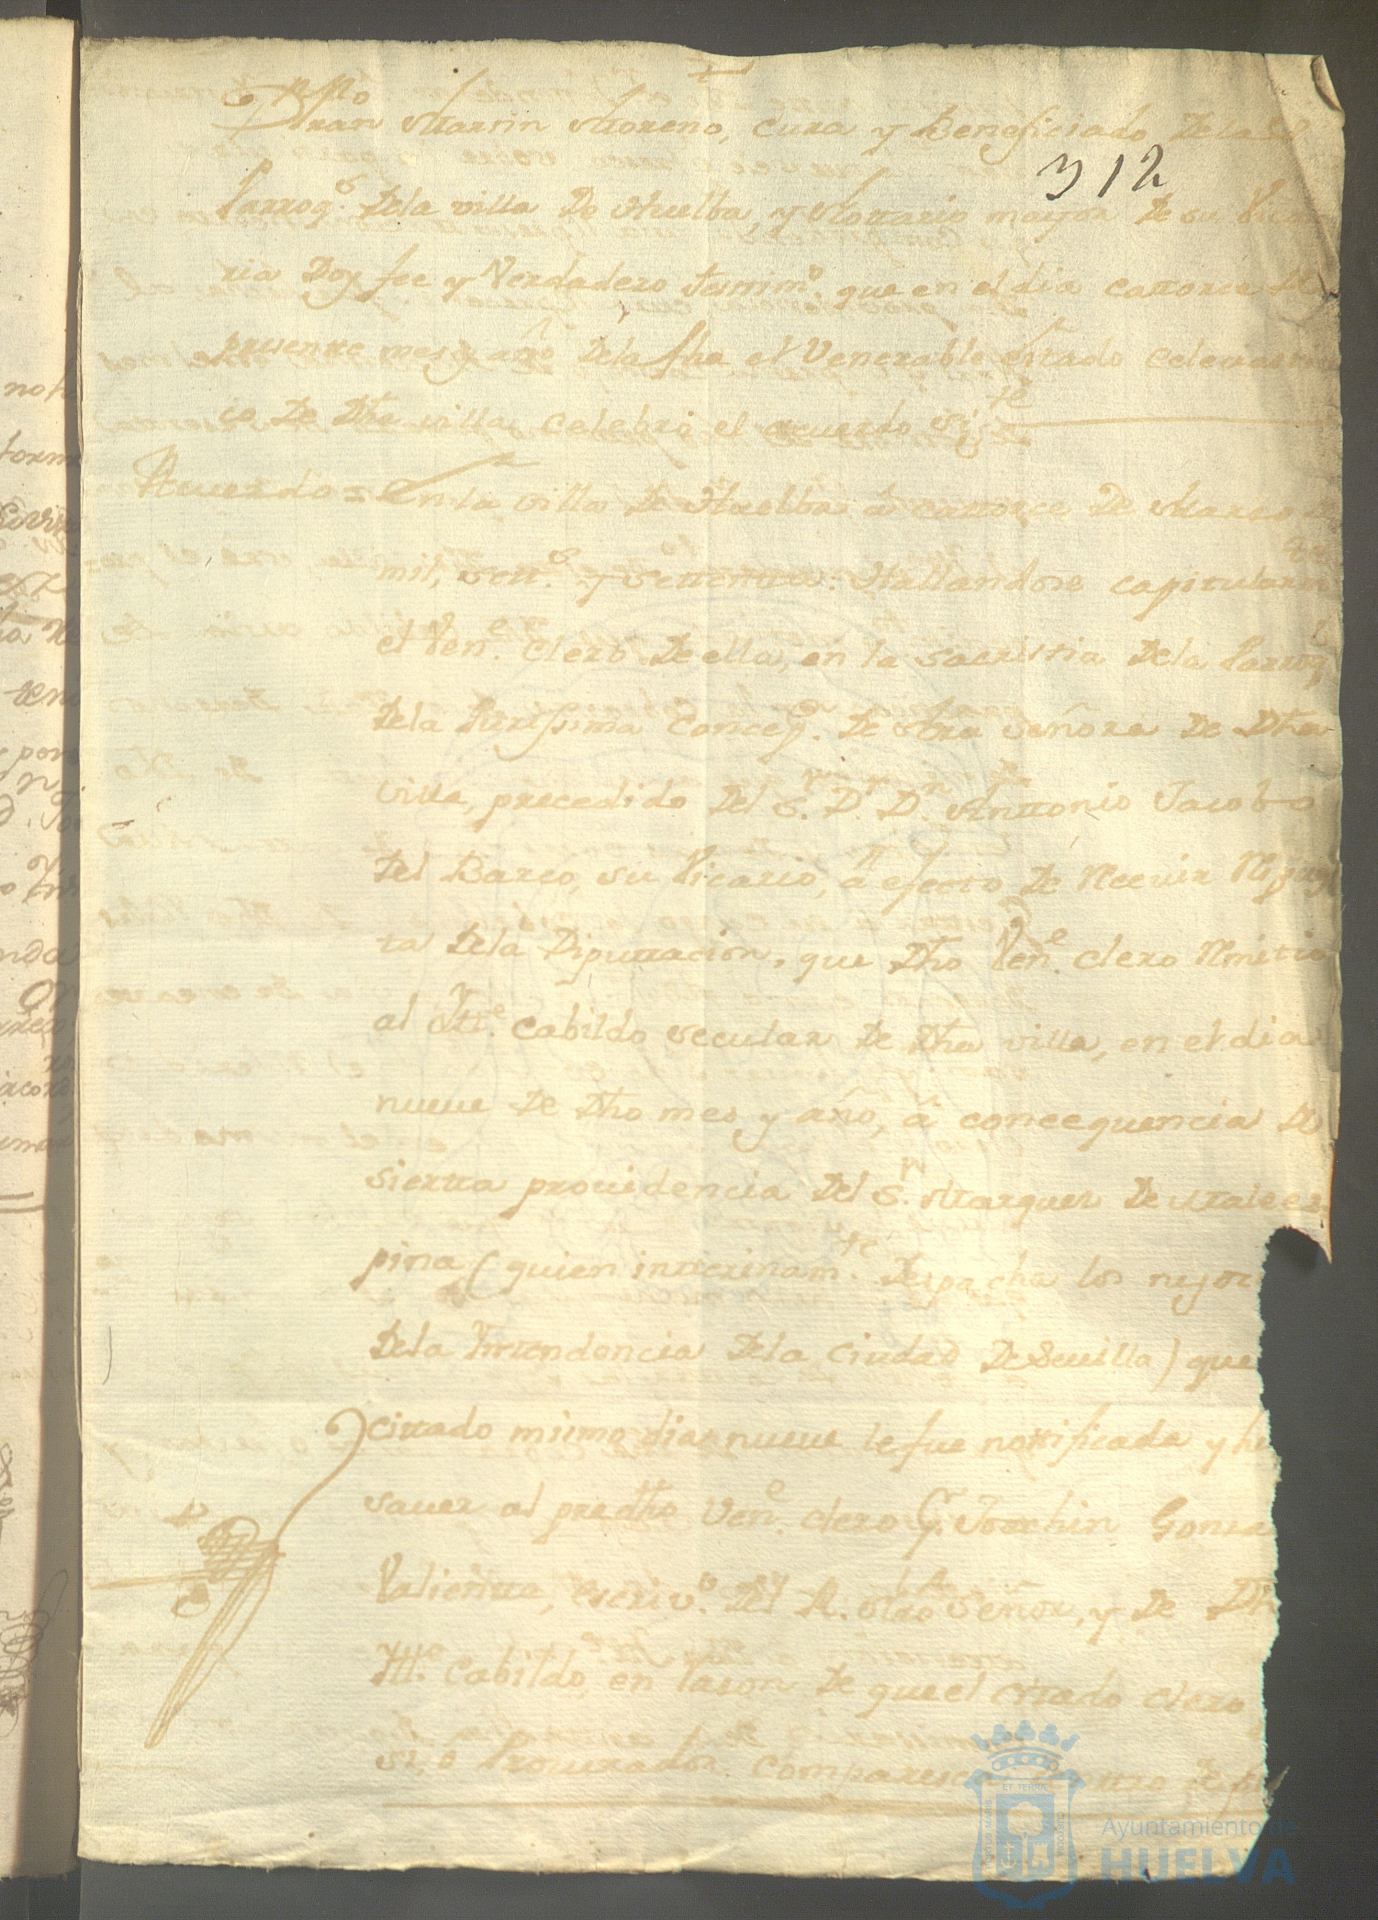 312
Fran Martin Moreno, cura y Beneficiado Dela
Parroq.ᵃ Dela villa De Huelba, y Nottario mayor De su Vica
ria Doy fee y Verdadero que en el dia cattorce De
presente mes y año Dela fha el Venerable estado eclesiasti
co De Dha villa celebró el acuerdo sig.ᵗᵉ
Acuerdo = En la villa De Huelba a cattorce De Marzo
mil, sett.ˢ y settentta: Hallandose capitular
el Ven.ᵉ Clero De ella, en la sacristia Dela Parroq
Dela Purissima Concep.ⁿ De Ntra Señora De Dha
villa, precedido Del S.ʳ D.ʳ D.ⁿ Anttonio Jacobo
Del Barco, su Vicario, á efecto De Recivir
ta Dela Diputtacion, que Dho Ven.ᵉ clero Rmitio
al Ill.ᵉ Cabildo secular De Dha villa, en el dia
nueve De Dho mes y año, á concequencia De
sierta providencia Del S.ʳ Marques De Malees
pina (quien intterinam.ᵗᵉ Despacha los negoc
Dela Inttendencia Dela Ciudad De Sevilla) que
cittado mismo dia nueve le fue nottificada y h
saver al predho Ven.ᵉ clero p.ʳ Joachin Gonza
Valientte, escriv.ᵒ Del R. Ntro Señor, y De Dh
Ill.ᵉ Cabildo, en rason De que el cittado clero
si, o Procurador comparesca Dentro De
ET TERRA
Ayuntamiento de
HUELVA